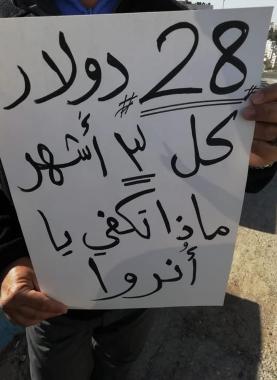 # 28 # دولار
كل ٣ أشهر
ماذا تكفي يا
أُنروا